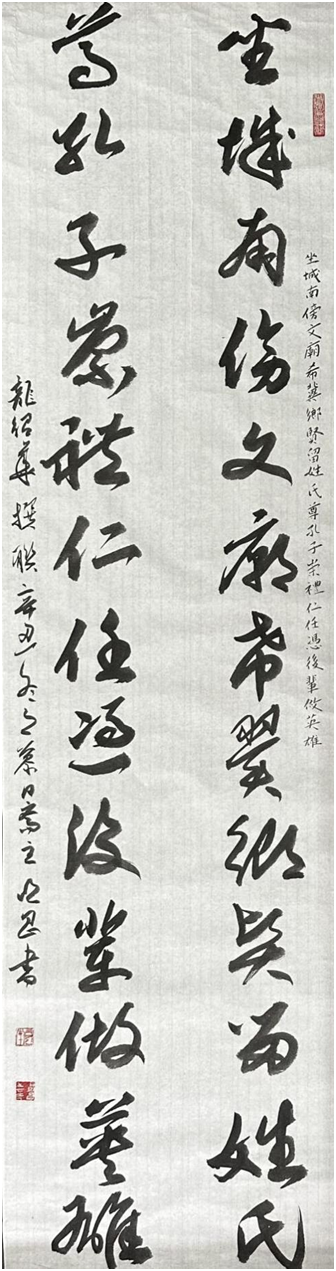 坐城南傍文廟希冀鄉賢留姓氏尊孔子崇禮仁任憑後輩做英雄
坐城南傍文廟希冀鄉賢留姓氏
尊孔子崇禮仁任憑後輩做英雄
龍紹華撰聯辛丑冬之慕日齋主書